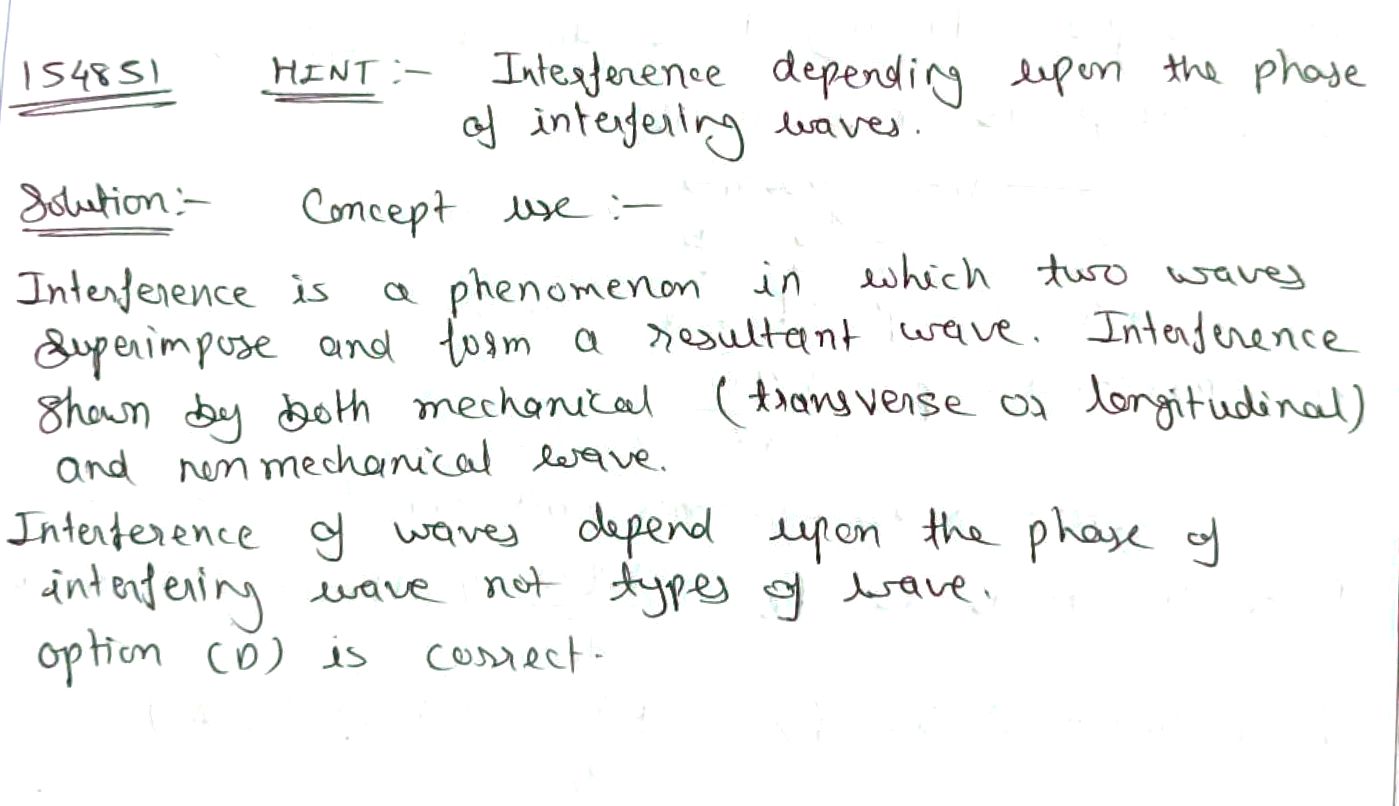 154851 HINT :- Interference depending upon the phase
of interfering waves.
Solution :- Concept use :-
Interference is a phenomenon in which two waves
superimpose and form a resultant wave. Interference
shown by both mechanical (transverse or longitudinal)
and non mechanical wave.
Interference of waves depend upon the phase of
interfering wave not types of wave.
option (D) is correct.